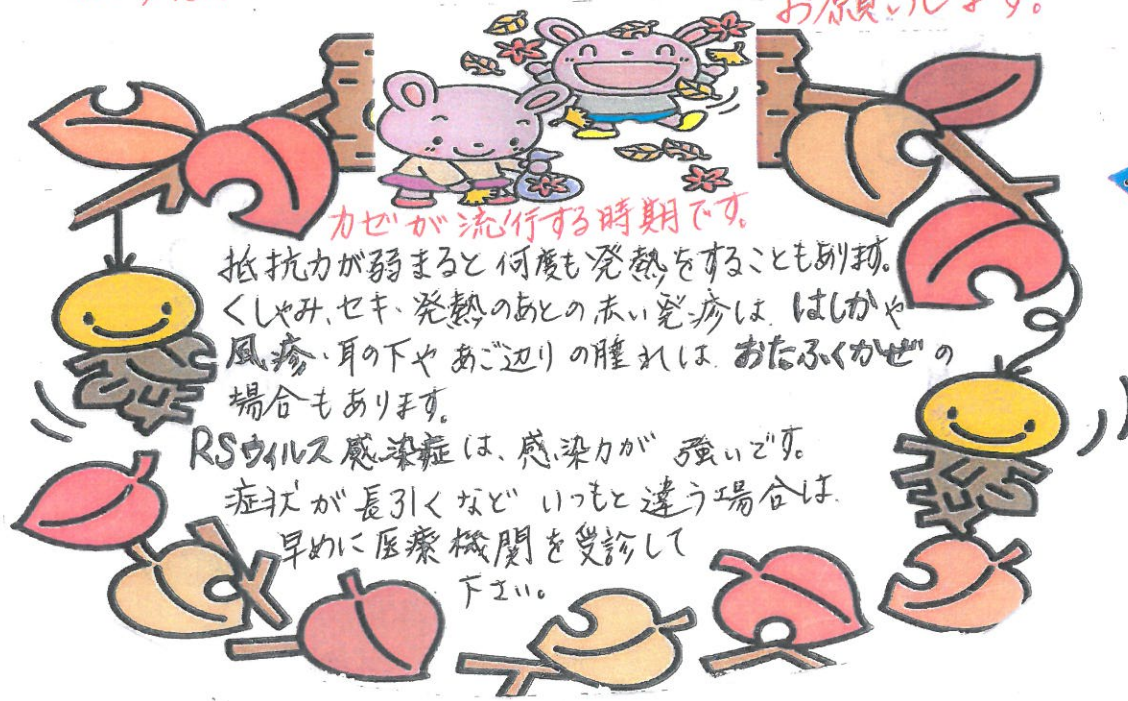 お願いします。
カゼが流行する時期です。
抵抗力が弱まると何度も発熱をすることもあります。
くしゃみ、セキ、発熱のあとの赤い発疹は はしかや
風疹、耳の下やあご辺りの腫れは おたふくかぜの
場合もあります。
RSウィルス感染症は、感染力が 強いです。
症状が長引くなど いつもと違う場合は
早めに医療機関を受診して
下さい。